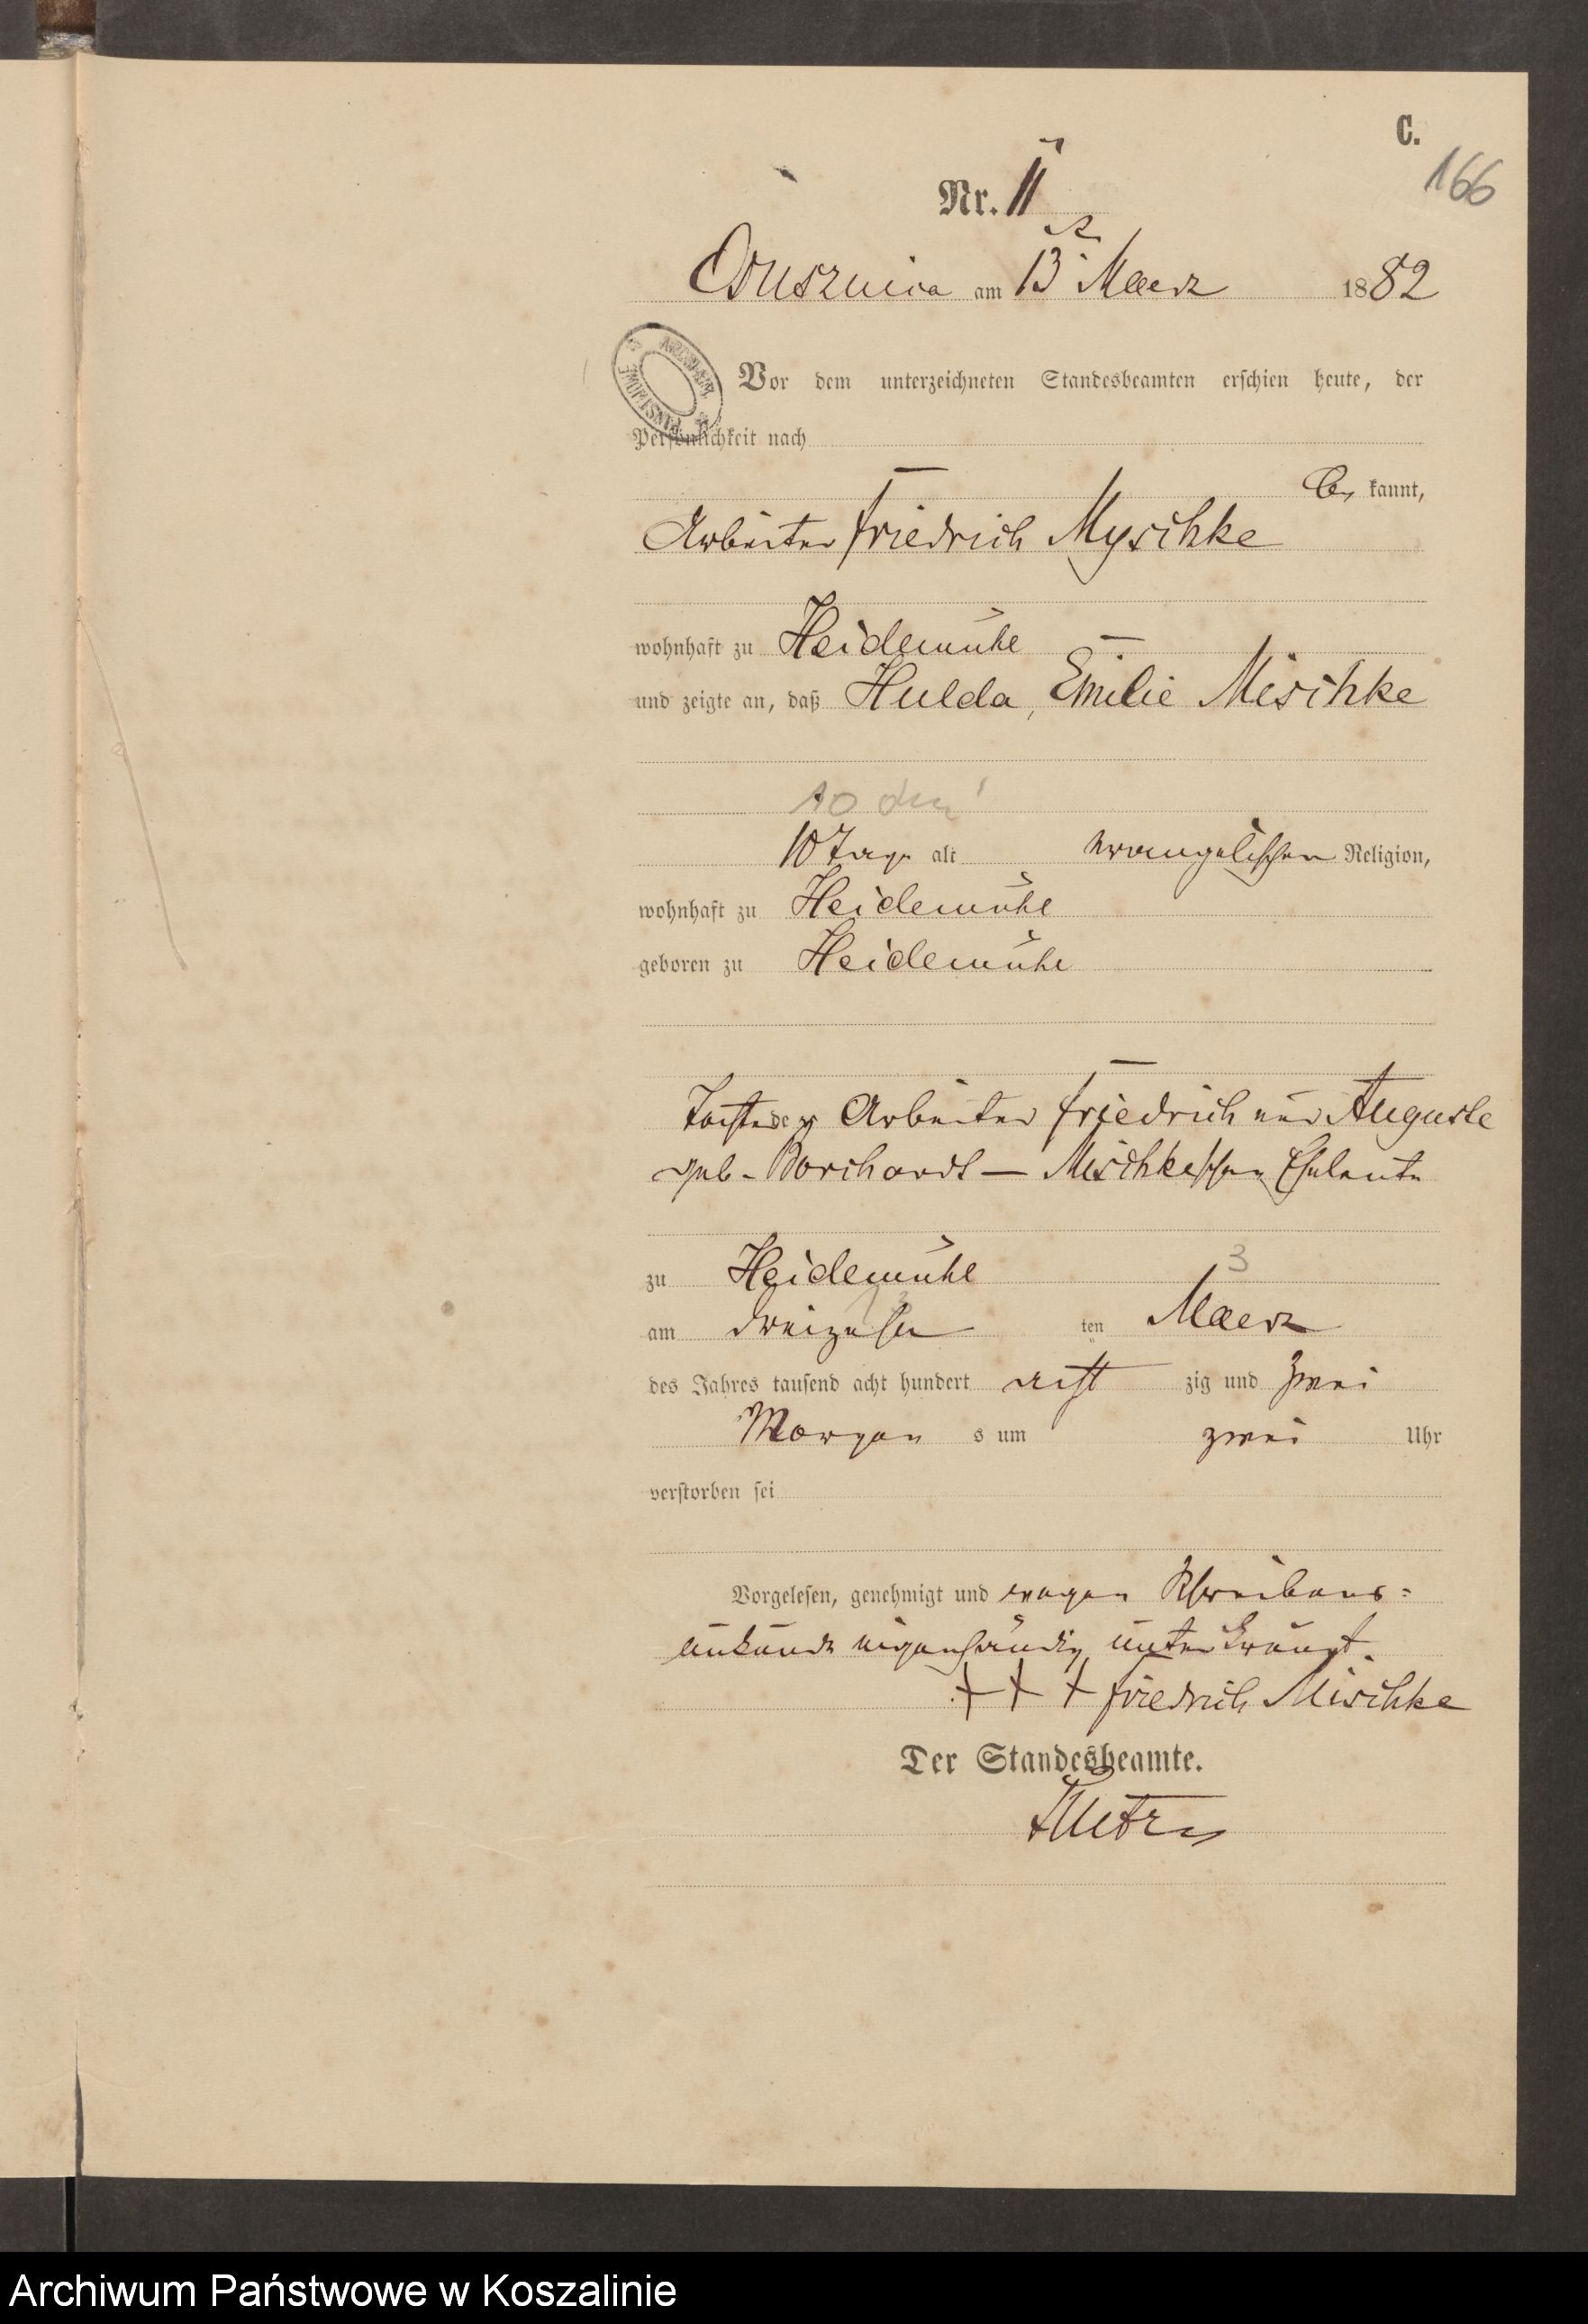 C.
166
Nr. 11
Ossusznica am 13 Maerz 1882
Vor dem unterzeichneten Standesbeamten erschien heute, der
Persönlichkeit nach
be kannt,
Arbeiter Friedrich Myschke
wohnhaft zu Heidemühl
und zeigte an, daß Hulda, Emilie Mischke
10 Tage alt evangelischer Religion,
wohnhaft zu Heidemühl
geboren zu Heidemühl
Tochter der Arbeiter Friedrich und Auguste
geb. Borchardt — Mischkeschen Eheleute
3
zu Heidemühl
am dreizehn ten Maerz
des Jahres tausend acht hundert acht zig und zwei
Morgen s um zwei Uhr
verstorben sei
Vorgelesen, genehmigt und wegen Schreibens-
unkunde eigenhändig unterkreuzt.
+ + + Friedrich Mischke
Der Standesbeamte.
Archiwum Państwowe w Koszalinie